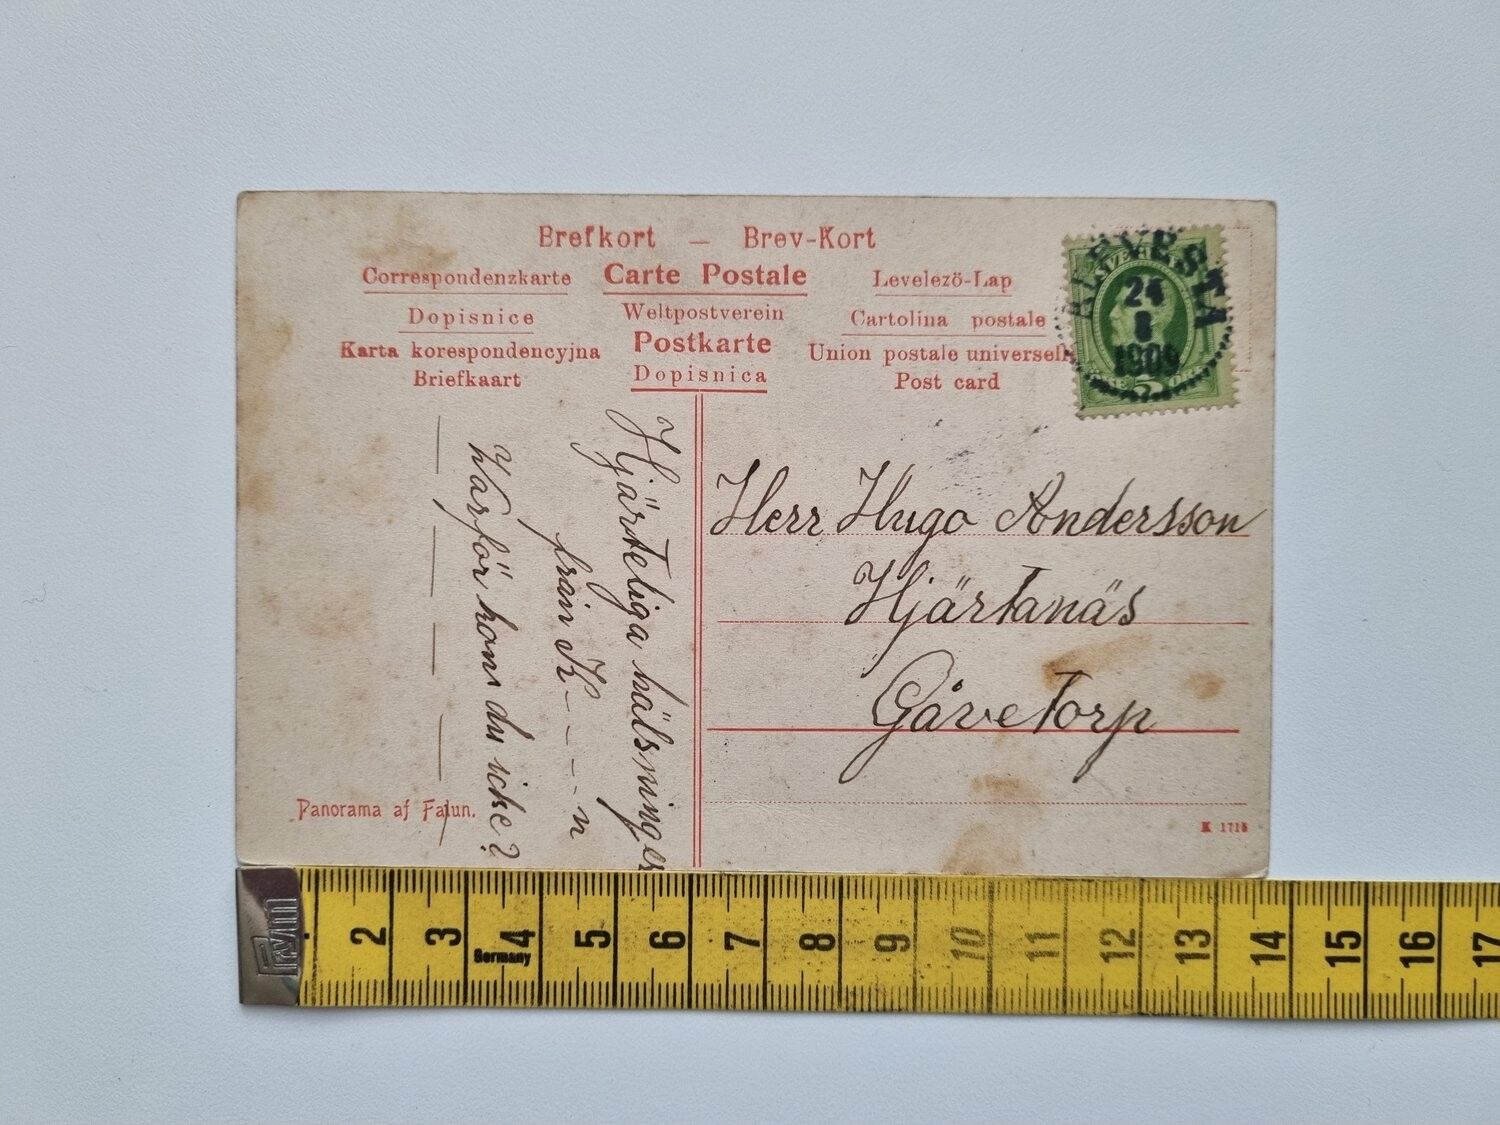 Brefkort — Brev-Kort
Correspondenzkarte Carte Postale Levelezö-Lap
Dopisnice Weltpostverein Cartolina postale
Karta korespondencyjna Postkarte Union postale universelle
Briefkaart Dopisnica Post card
ALFVESTA
24
8
1909
5
Herr Hugo Andersson
Hjärtanäs
Gåvetorp
Hjärteliga hälsningar
från K - - - - n
Varför kom du icke?
Panorama af Falun.
K 1715
PRYM
2 3 4 5 6 7 8 9 10 11 12 13 14 15 16 17
Germany